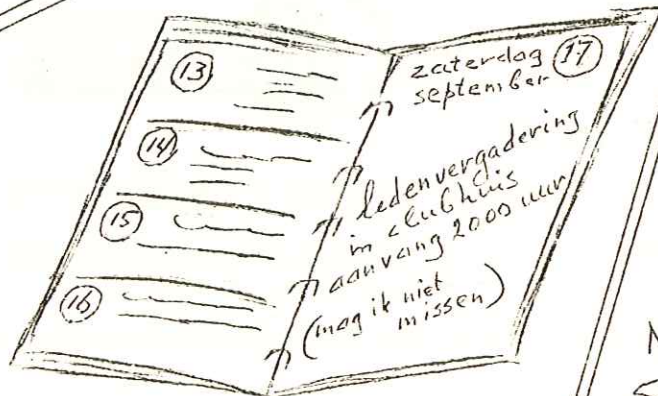 13
14
15
16
zaterdag 17
september
ledenvergadering
in clubhuis
aanvang 2000 uur
(mag ik niet
missen)